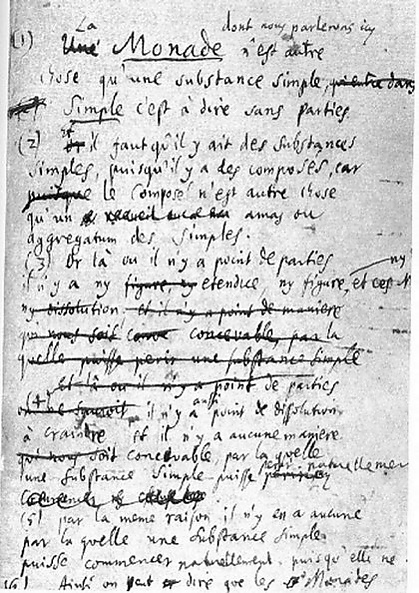 La dont nous parlerons icy
(1) Une Monade n'est autre
chose qu'une substance simple, qui entre dans
Simple c'est à dire sans parties.
(2) et il faut qu'il y ait des substances
simples, puisqu'il y a des composés, car
puisque le composé n'est autre chose
qu'un amas ou
aggregatum des simples.
(3) Or là ou il n'y a point de parties ny
il n'y a ny figure, ny etendue, ny figure, et
ny dissolution et il n'y a point de maniere
qui nous soit concevable, par la
quelle puisse perir une substance simple
et là ou il n'y a point de parties
(4) on ne sauroit il n'y a aussi point de dissolution
à craindre et il n'y a aucune maniere
qui nous soit concevable, par la quelle
une substance simple puisse perir naturellement
(5) par la meme raison il n'y en a aucune
par la quelle une substance simple
puisse commencer naturellement, puisqu'elle ne
(6) Ainsi on peut dire que les Monades